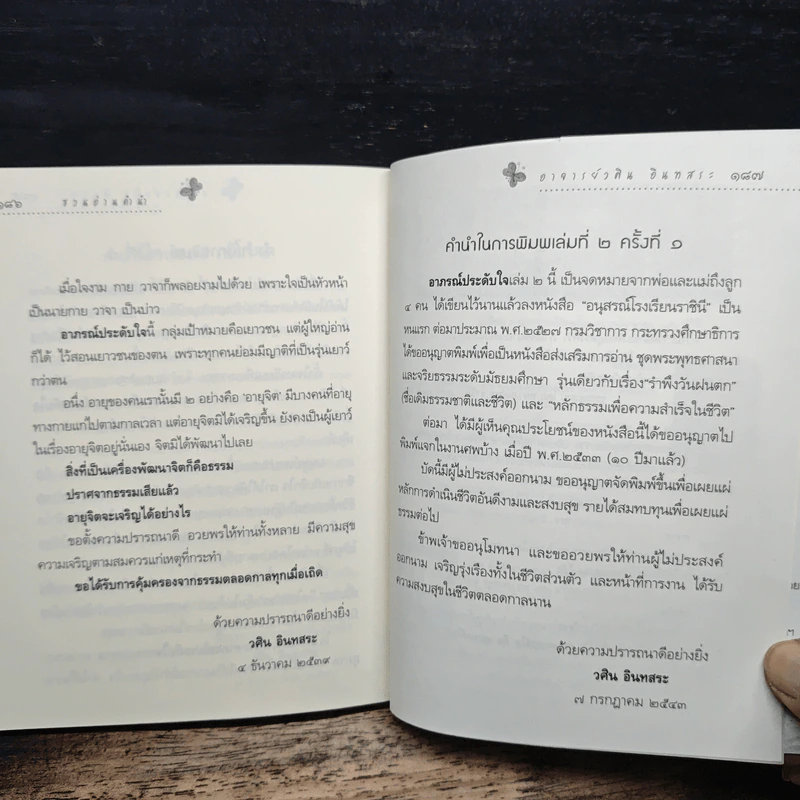 ๑๘๖ ชวนอ่านคำนำ
เมื่อใจงาม กาย วาจาก็พลอยงามไปด้วย เพราะใจเป็นหัวหน้า
เป็นนายกาย วาจา เป็นบ่าว
อาภรณ์ประดับใจนี้ กลุ่มเป้าหมายคือเยาวชน แต่ผู้ใหญ่อ่าน
ก็ได้ ไว้สอนเยาวชนของตน เพราะทุกคนย่อมมีญาติที่เป็นรุ่นเยาว์
กว่าตน
อนึ่ง อายุของคนเรานั้นมี ๒ อย่างคือ 'อายุจิต' มีบางคนที่อายุ
ทางกายแก่ไปตามกาลเวลา แต่อายุจิตมิได้เจริญขึ้น ยังคงเป็นผู้เยาว์
ในเรื่องอายุจิตอยู่นั่นเอง จิตมิได้พัฒนาไปเลย
สิ่งที่เป็นเครื่องพัฒนาจิตก็คือธรรม
ปราศจากธรรมเสียแล้ว
อายุจิตจะเจริญได้อย่างไร
ขอตั้งความปรารถนาดี อวยพรให้ท่านทั้งหลาย มีความสุข
ความเจริญตามสมควรแก่เหตุที่กระทำ
ขอได้รับการคุ้มครองจากธรรมตลอดกาลทุกเมื่อเถิด
ด้วยความปรารถนาดีอย่างยิ่ง
วศิน อินทสระ
๔ ธันวาคม ๒๕๓๙
อาจารย์วศิน อินทสระ ๑๘๗
คำนำในการพิมพ์เล่มที่ ๒ ครั้งที่ ๑
อาภรณ์ประดับใจเล่ม ๒ นี้ เป็นจดหมายจากพ่อและแม่ถึงลูก
๔ คน ได้เขียนไว้นานแล้วลงหนังสือ "อนุสรณ์โรงเรียนราชินี" เป็น
หนแรก ต่อมาประมาณ พ.ศ.๒๕๒๗ กรมวิชาการ กระทรวงศึกษาธิการ
ได้ขออนุญาตพิมพ์เพื่อเป็นหนังสือส่งเสริมการอ่าน ชุดพระพุทธศาสนา
และจริยธรรมระดับมัธยมศึกษา รุ่นเดียวกับเรื่อง"รำพึงวันฝนตก"
(ชื่อเดิมธรรมชาติและชีวิต) และ "หลักธรรมเพื่อความสำเร็จในชีวิต"
ต่อมา ได้มีผู้เห็นคุณประโยชน์ของหนังสือนี้ได้ขออนุญาตไป
พิมพ์แจกในงานศพบ้าง เมื่อปี พ.ศ.๒๕๓๓ (๑๐ ปีมาแล้ว)
บัดนี้มีผู้ไม่ประสงค์ออกนาม ขออนุญาตจัดพิมพ์ขึ้นเพื่อเผยแผ่
หลักการดำเนินชีวิตอันดีงามและสงบสุข รายได้สมทบทุนเพื่อเผยแผ่
ธรรมต่อไป
ข้าพเจ้าขออนุโมทนา และขออวยพรให้ท่านผู้ไม่ประสงค์
ออกนาม เจริญรุ่งเรืองทั้งในชีวิตส่วนตัว และหน้าที่การงาน ได้รับ
ความสงบสุขในชีวิตตลอดกาลนาน
ด้วยความปรารถนาดีอย่างยิ่ง
วศิน อินทสระ
๗ กรกฎาคม ๒๕๔๓